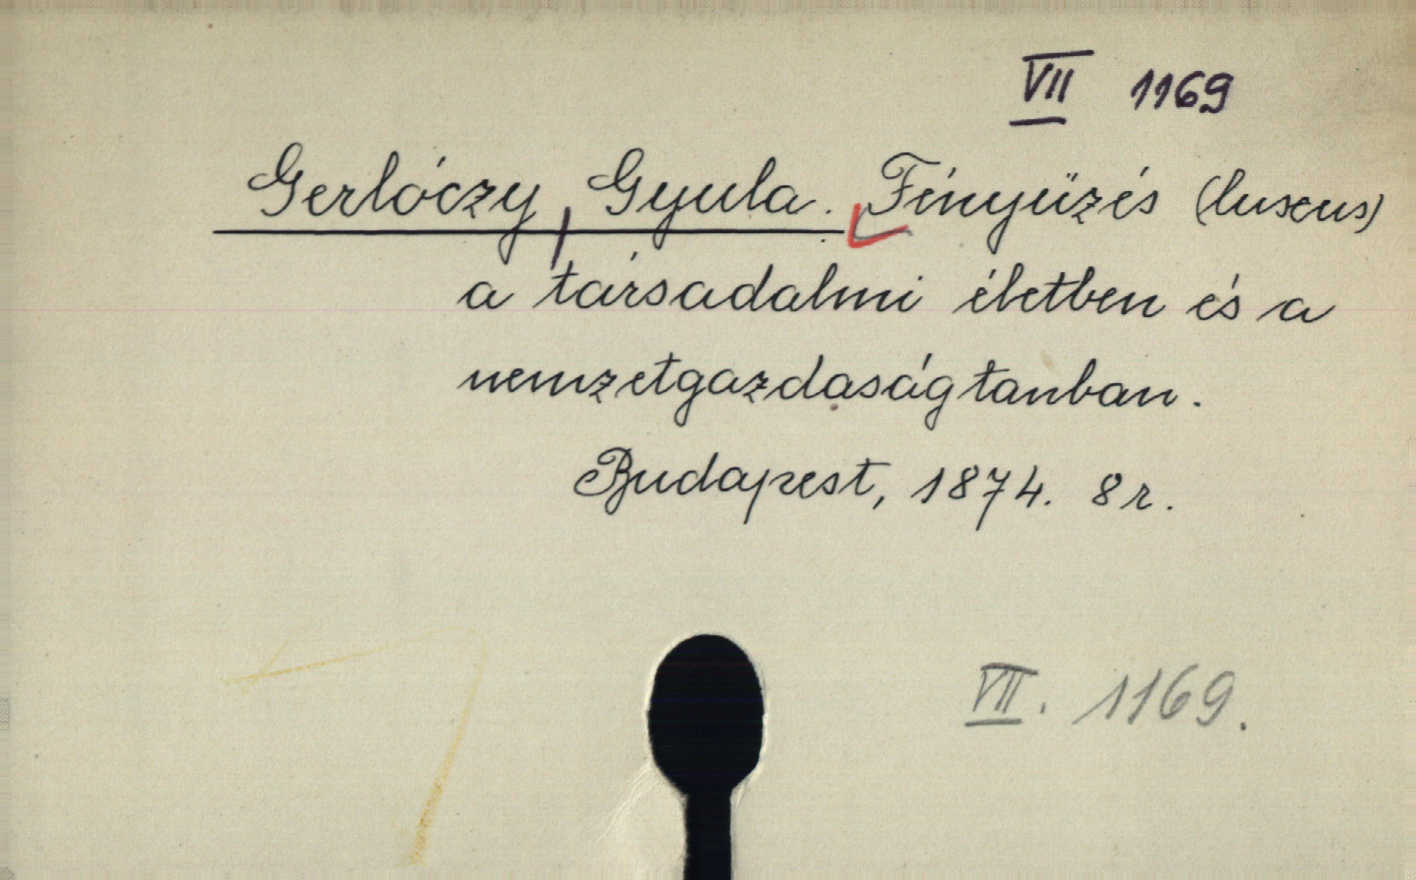 VII 1169
Gerlóczy, Gyula. Fényüzés (luxus)
a társadalmi életben és a
nemzetgazdaságtanban.
Budapest, 1874. 8r.
VII. 1169.